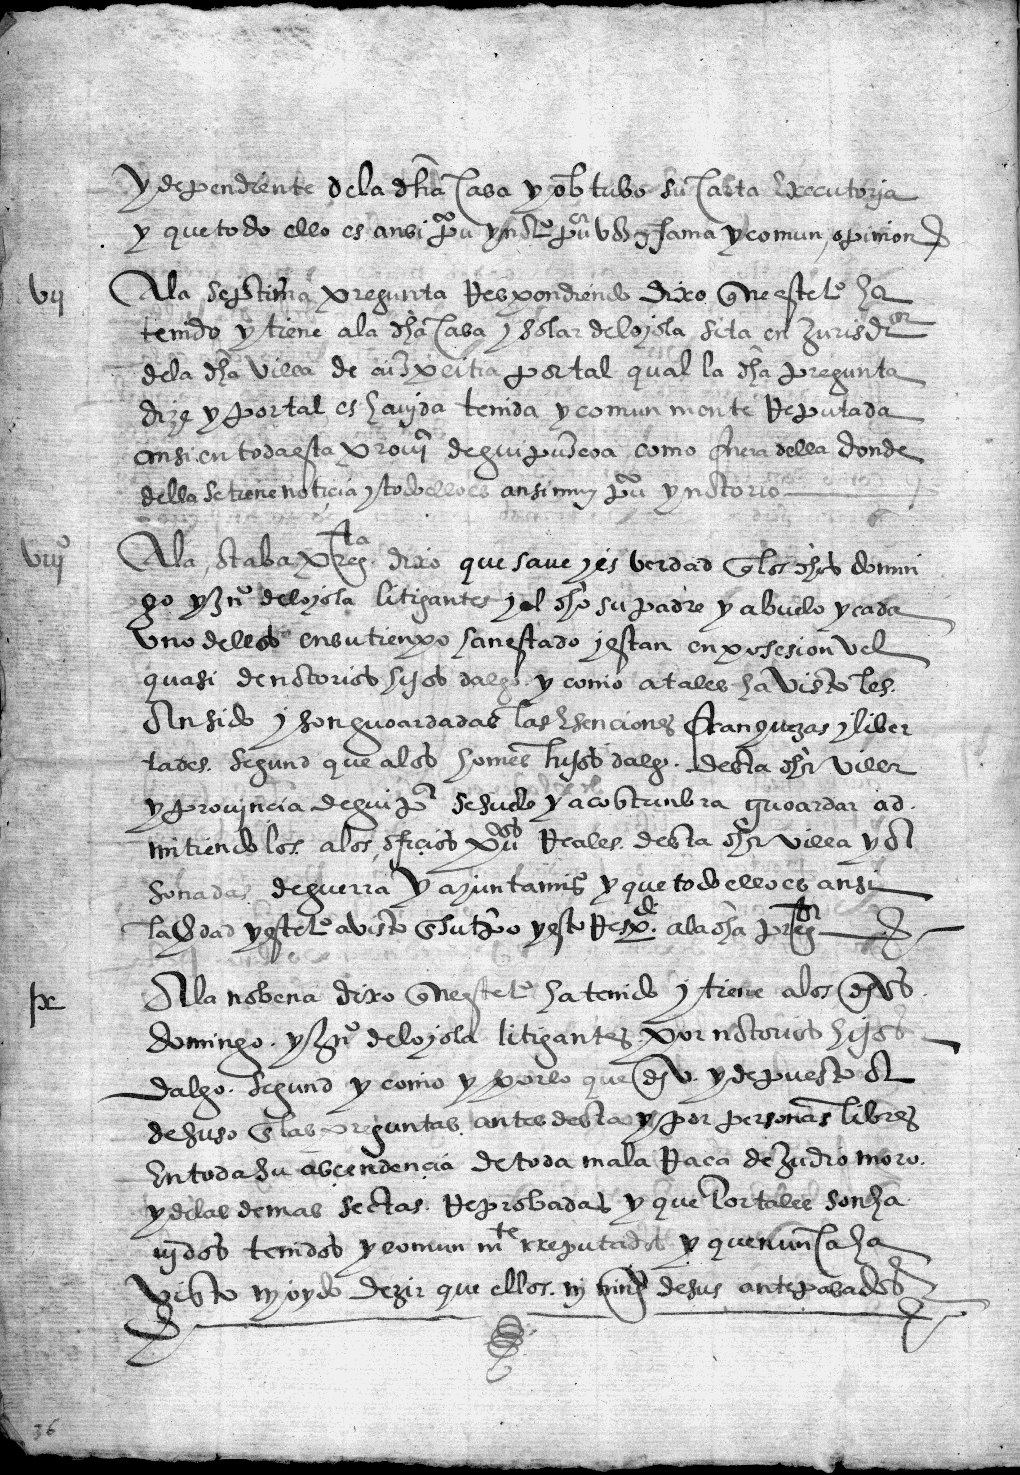 y dependiente de la dha casa y obtubo su carta executoria
y que todo ello es ansi puco y notro puca voz y fama y comun opinion
vij A la septima pregunta Respondiendo dixo que este to ha
tenido y tiene a la dha casa y solar de loyola sita en jurisdion
de la dha villa de azpeitia por tal qual la dha pregunta
dize y por tal es havyda tenida y comun mente Reputada
ansi en toda esta provja de guipuzcoa como fuera della donde
della se tiene noticia y todo ello es ansi muy puco y notorio
viijo A la otaba pregta dixo que save y es verdad q los dhos domin
go y Juo de loyola litigantes y el dho su padre y abuelo y cada
uno dellos en su tienpo han estado y estan en posesion vel
quasi de notorios hijos dalgo y como a tales ha visto les
An sido y son guoardadas las Esenciones franquezas y liber
tades segund que a los homes hijos dalgo desta dha villa
y provincia de guipa se suele y acostunbra guoardar ad
mitiendolos a los oficios pucos Reales desta dha villa y A
sonadas de guerra y ayuntamios y que todo ello es ansi
la vdad y este to a visto en su tpo y esto Respdi a la dha pregta
ix A la nobena dixo que este to ha tenido y tiene a los dhos
domingo y Juo de loyola litigantes por notorios hijos
dalgo segund y como y por lo que dho y depuesto A
de suso en las preguntas antes desta y por personas libres
En toda su ascendencia de toda mala Raca de Judio moro
y de las demas sectas Reprobadas y que por tales son ha
vjdos tenidos y comun mte rreputados y que nunca ha
visto ny oydo dezir que ellos ny ningo de sus antepasados
36